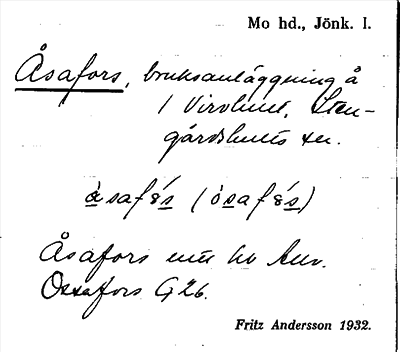 Mo hd., Jönk. l.
Åsafors, bruksanläggning å
1 Virvhult, Sten-
gårdshults sn.
àsafǿs (òsafǿs)
Åsafors enl hv Anv.
Ossafors G 26.
Fritz Andersson 1932.